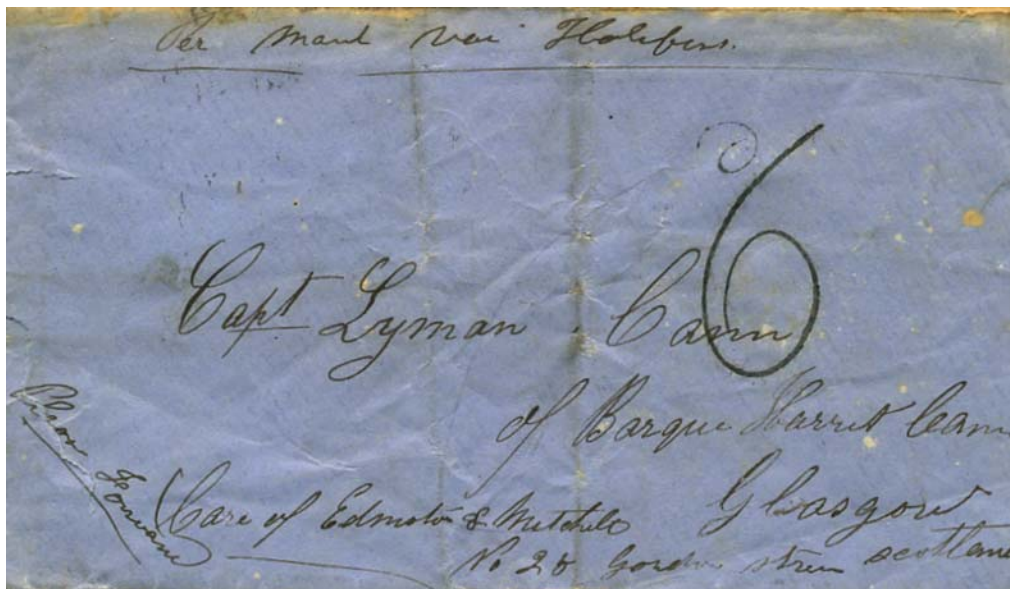 Per Mail via Halifax.
6
Capt Lyman Cann
of Barque Harriet Cann
Glasgow
Please Forward
Care of Edmoton & Mitchele
No Gordon Street Scotland